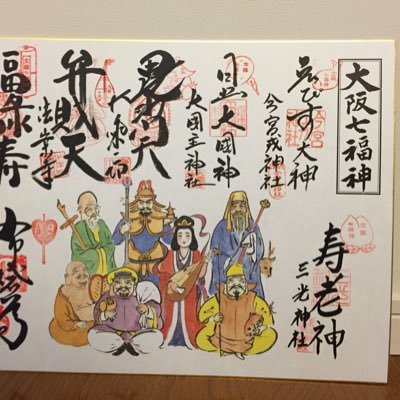 大阪七福神
寿老神
三光神社
ゑびす大神
今宮戎神社
日出大国神
大国主神社
毘沙門天
大乗坊
弁財天
法案寺
福禄寿
布袋尊